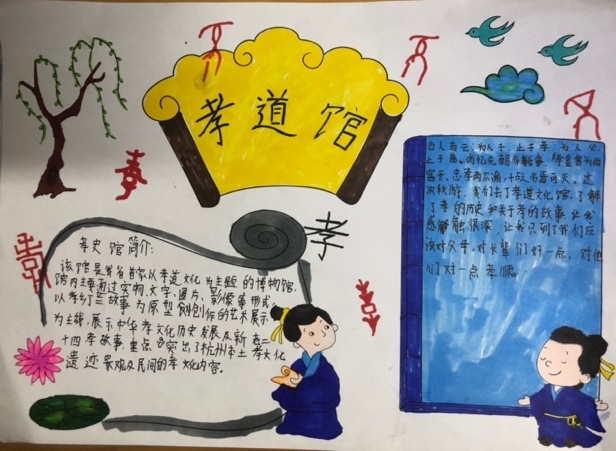 孝道馆
孝
孝史馆简介:
该馆是省首家以孝道文化为主题的博物馆,
馆内主要通过实物、文字、图片、影像等形式,
故事为原型创作的艺术展示
为主线,展示中华孝文化历史发展及新老二
十四孝故事,重点突出了杭州本土孝文化
遗迹景观及民间的孝文化内容。
古人有云:为人子,止于孝;为人父,
止于慈。
次秋游,我们去了孝道文化馆,了解
了孝的历史和关于孝的故事,让我
感触很深,让我知到了我们应
该对父母,对长辈们好一点,对他
们对一点孝顺。